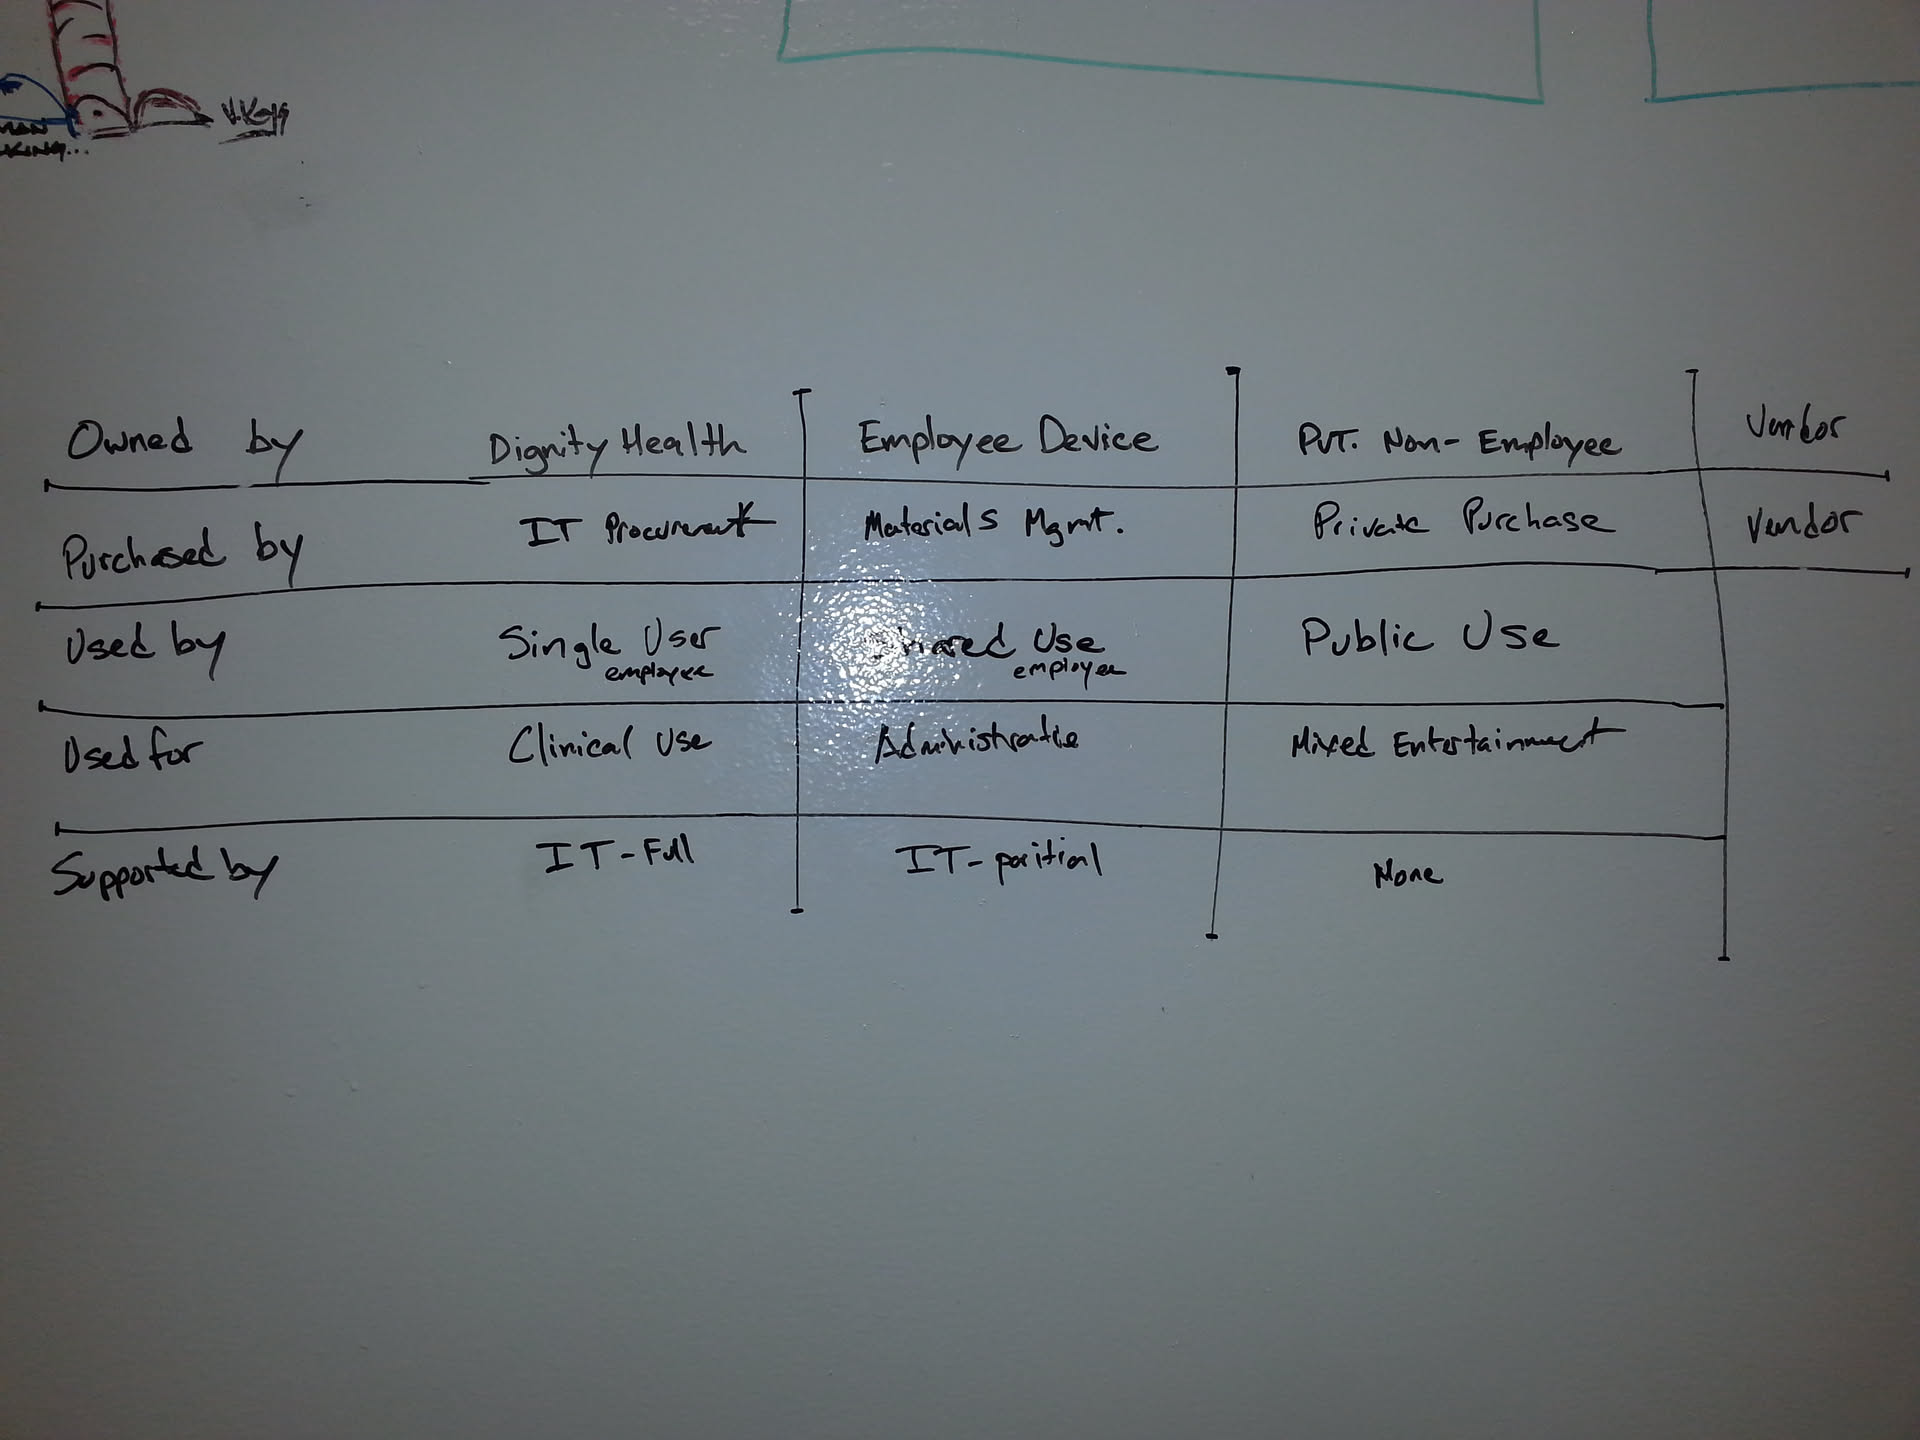 MAN
KING...
Owned by Dignity Health Employee Device PVT. Non-Employee Vendor
Purchased by IT Procurement Materials Mgmt. Private Purchase Vendor
Used by Single User Shared Use Public Use
employee employee
Used for Clinical Use Administrative Mixed Entertainment
Supported by IT-Full IT-paritial None